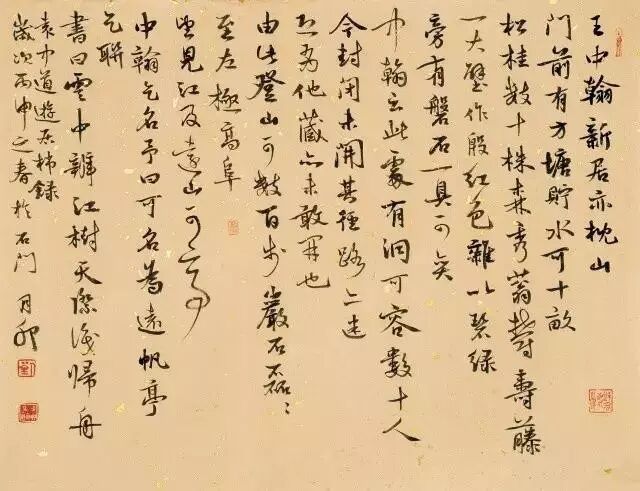 王中翰新居亦枕山
門前有方塘貯水可十畝
松桂数十株森秀蓊欝壽藤
一大壁作殷紅色雜以碧緑
旁有磐石一具可矣
中翰云此處有洞可容數十人
今封閉未開其徑路亦迷
恐为他藏亦未敢开也
由此登山可数百步巖石磊々
至左極高阜
望見江及遠山可亭
中翰乞名予曰可名為遠帆亭
乞联
書曰雲中辨江樹天際識歸舟
袁中道遊居柿錄
歲次丙申之春於石門 月